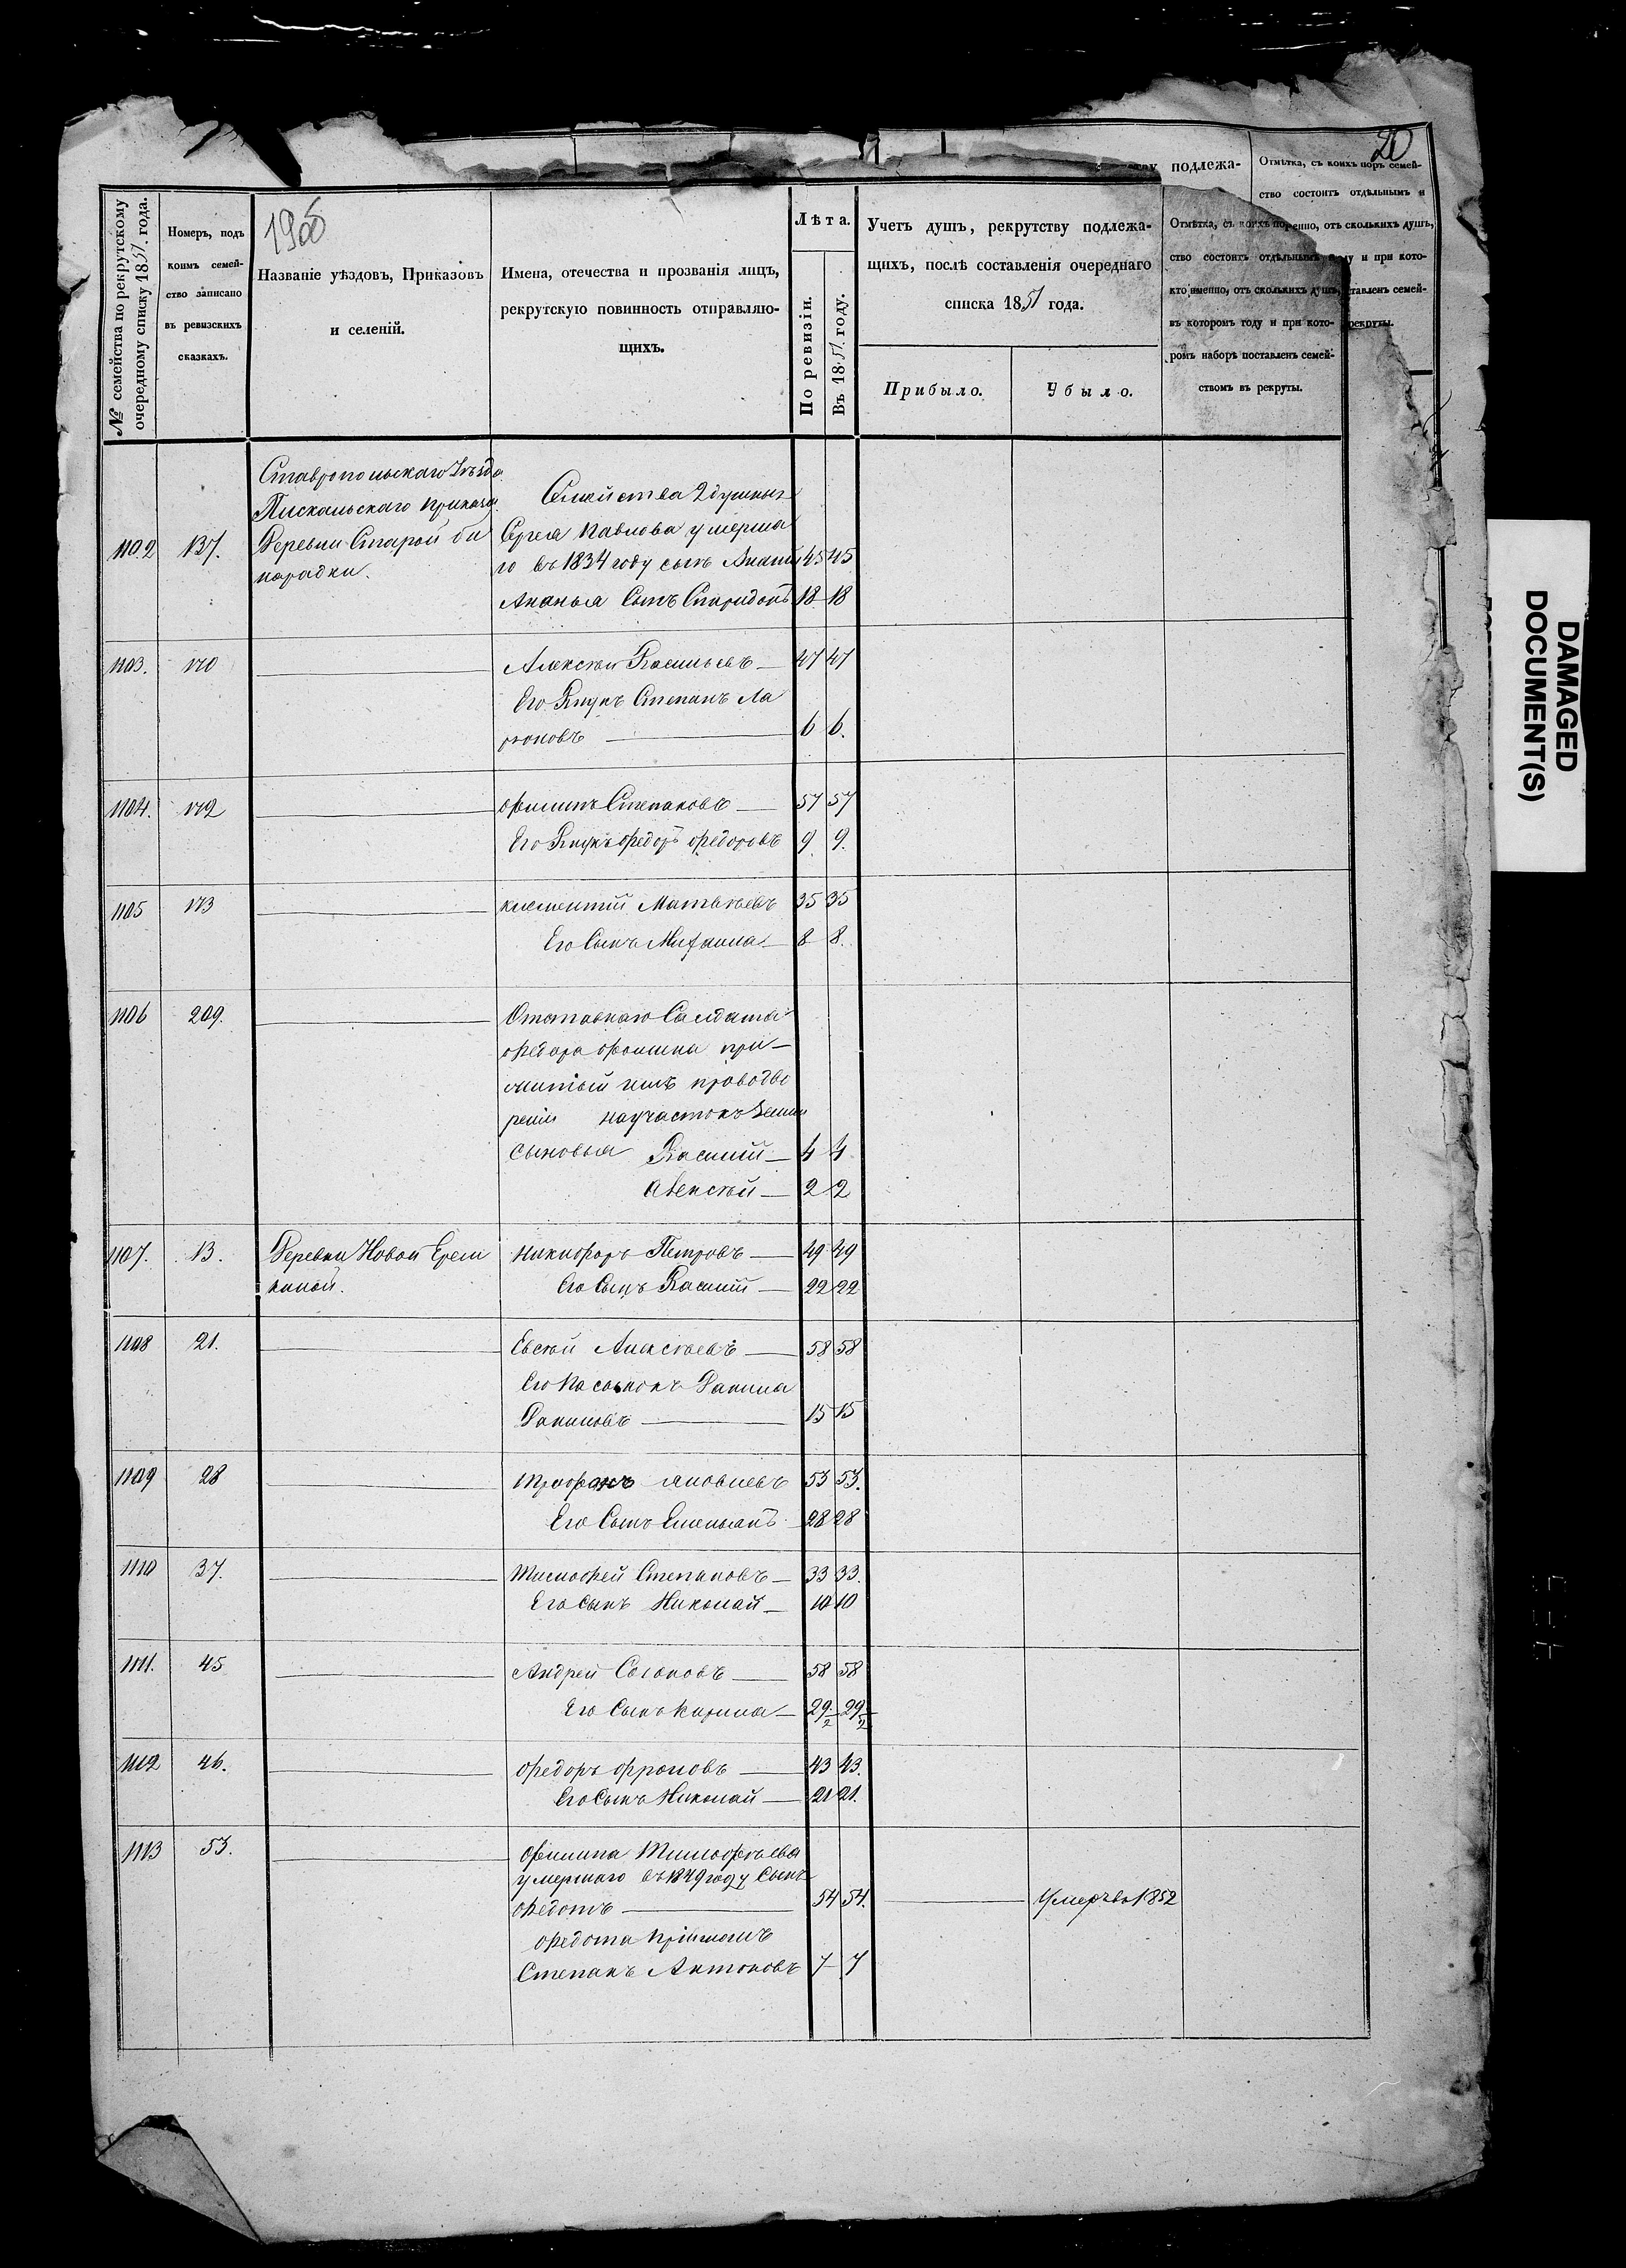 20
ству подлежа-
Отмѣтка, съ коихъ поръ семей-
ство состоитъ отдѣльнымъ и
№ семейства по рекрутскому очередному списку 1851 года.
Номеръ, подъ
коимъ семей-
ство записано
въ ревизскихъ
сказкахъ.
1906
Названіе уѣздовъ, Приказовъ
и селеній.
Имена, отечества и прозванія лицъ,
рекрутскую повинность отправляю-
щихъ.
Лѣта.
По ревизіи.
Въ 1851 году.
Учетъ душъ, рекрутству подлежа-
щихъ, послѣ составленія очереднаго
списка 1851 года.
Прибыло.
Убыло.
Отмѣтка, съ коихъ поренно, отъ сколькихъ душъ,
ство состоитъ отдѣльнымъ ду и при кото-
кто именно, отъ сколькихъ душъ, ставленъ семей-
въ которомъ году и при кото- рекруты.
ромъ наборѣ поставленъ семей-
ствомъ въ рекруты.
Ставропольскаго Уѣзда
Пискальскаго приказа
Семейства 2 душныя
1102 137. Деревни Старой Би Сергея Павлова умерша
нарадки. го въ 1834 году сынъ Ананій 45 45
Ананья Сынъ Спиридонъ 18 18
1103. 170 Алексѣй Васильевъ 47 47
Его Внукъ Степанъ Ла
ріоновъ 6 6.
1104. 172 Филипъ Степановъ 57 57
Его Внукъ Федоръ Федоровъ 9 9.
1105 173 Клементій Матвѣевъ 35 35
Его Сынъ Михаила 8 8.
1106 209. Отставнаго Салдата
Федора Фомина при
житый имъ проводво
реніи на участокъ земли
сыновья Василій 4 4
Алексѣй 2 2
1107. 13. Деревни Новой Ерем Никифоръ Петровъ 49 49
киной. Его Сынъ Василій 22 22
1108 21. Евсѣй Алексѣевъ 58 58
Его Пасынокъ Данила
Даниловъ 15 15
1109 28 Трофимъ Яковлевъ 53 53.
Его Сынъ Емельянъ 28 28
1110 37. Тимофей Степановъ 33 33.
Его Сынъ Николай 10 10
1111. 45 Андрей Созоновъ 58 58
Его Сынъ Кирила 29½ 29½
1112 46. Федоръ Фроловъ 43 43.
Его Сынъ Николай 21 21.
1113 53. Филипа Тимофѣева
умершаго въ 1849 году Сынъ
Федотъ 54 54. Умеръ въ 1852
Федота пріимышъ
Степанъ Антоновъ 7 7
DAMAGED
DOCUMENT(S)